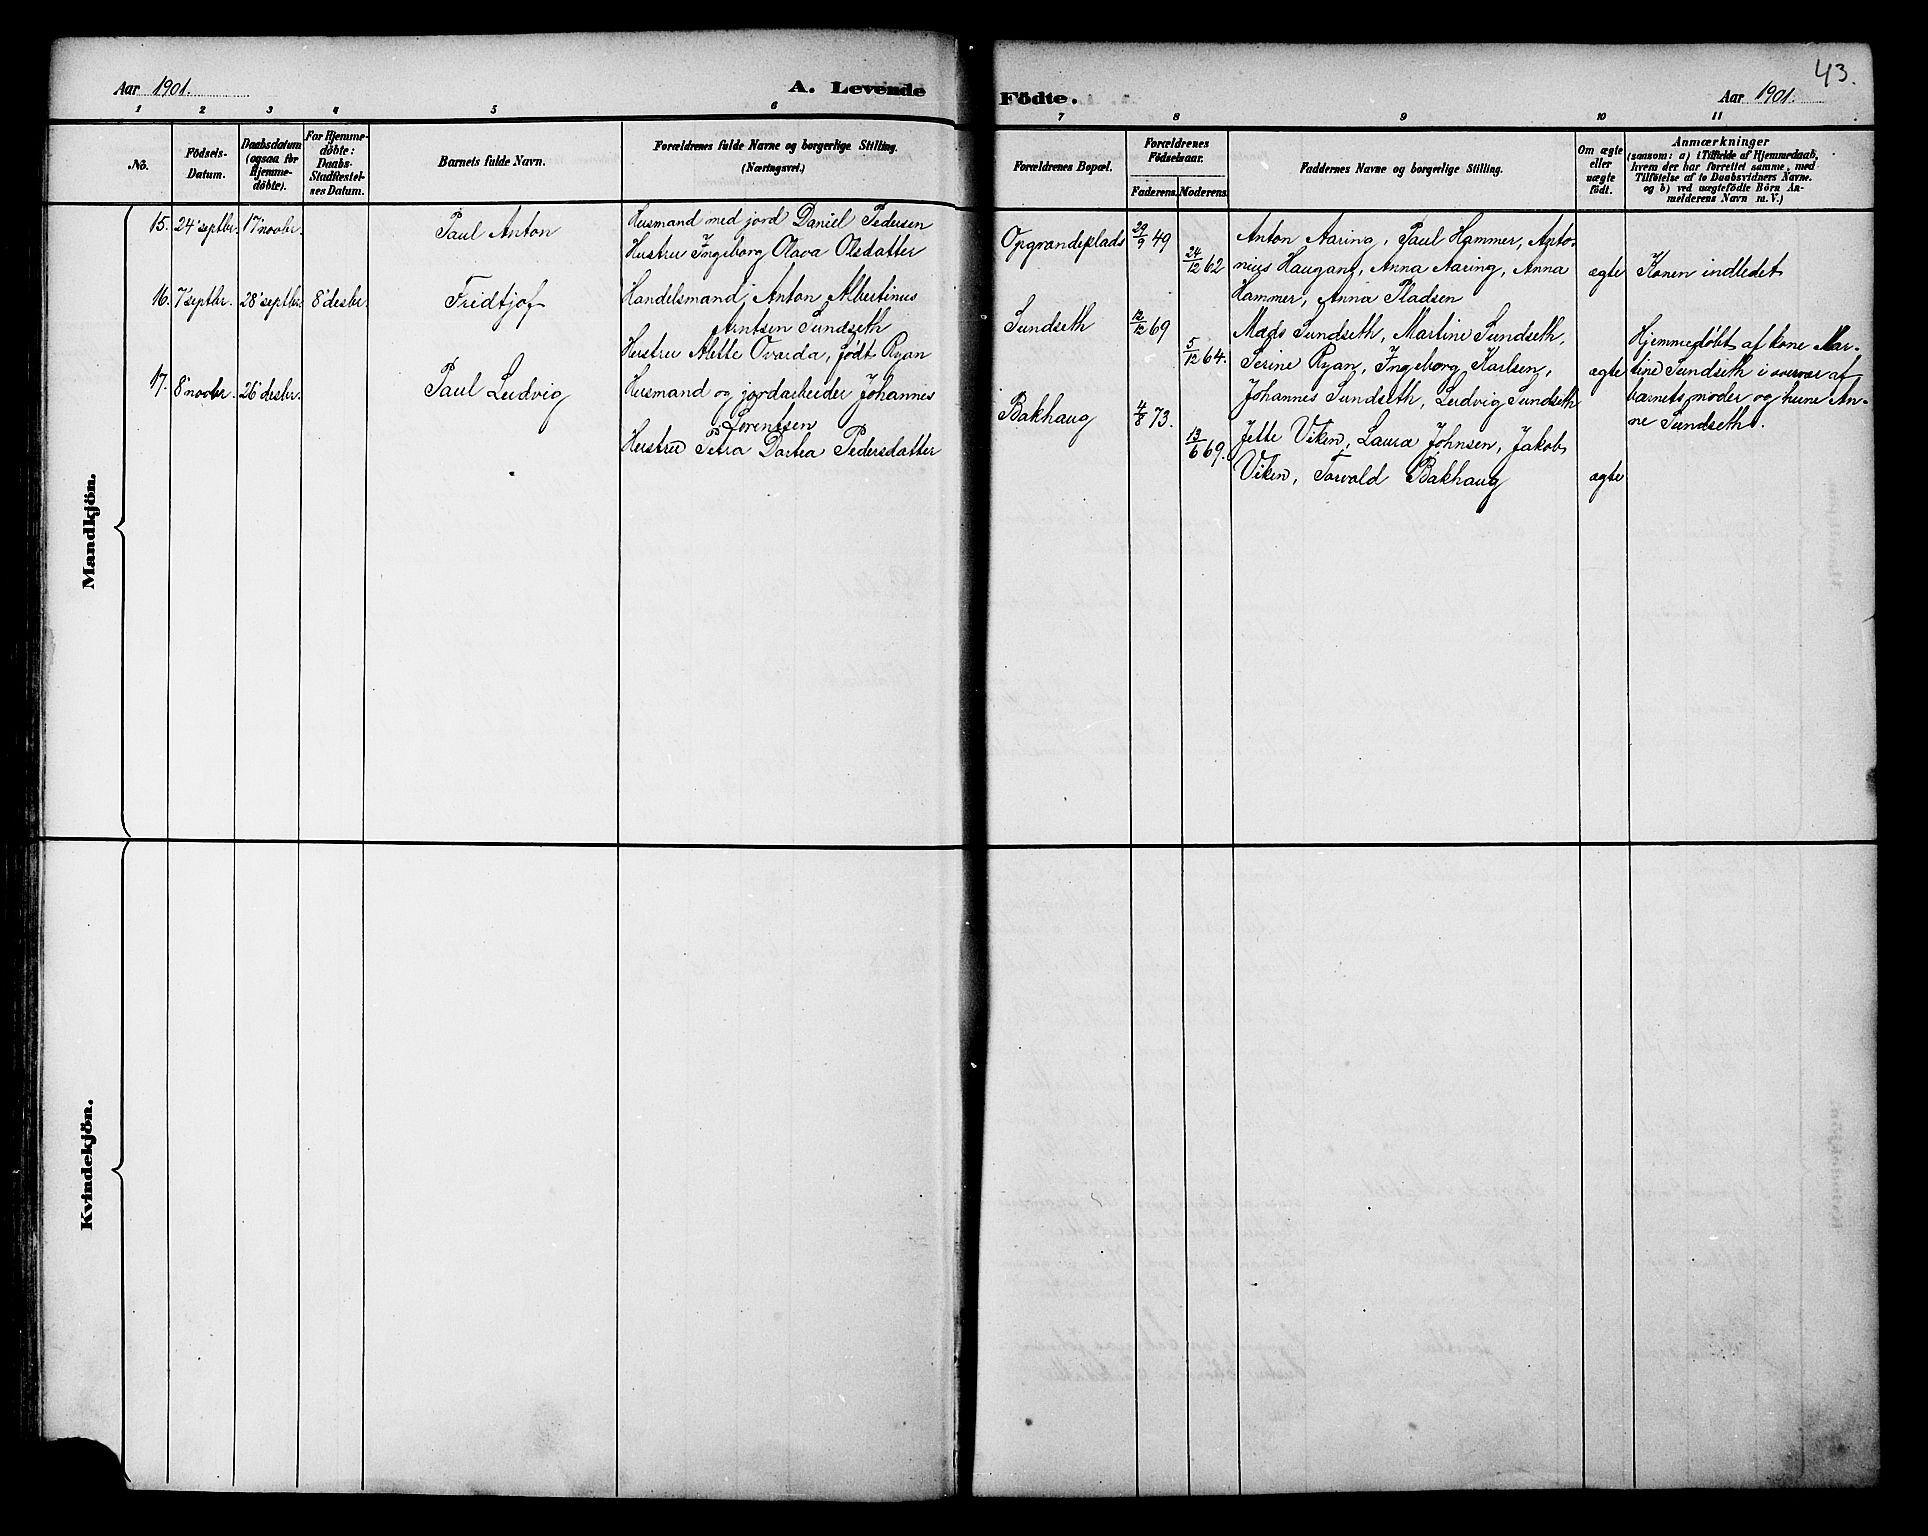 43.
Aar 1901. A. Levende Födte. Aar 1901.
1 2 3 4 5 6 7 8 9 10 11
No.
Födsels-Datum.
Daabsdatum (ogsaa for Hjemme-döbte).
For Hjemme-döbte: Daabs-Stadfæstel-ses Datum.
Barnets fulde Navn.
Forældrenes fulde Navne og borgerlige Stilling.
(Næringsvei.)
Forældrenes Bopæl.
Forældrenes Födselsaar.
Faderens. Moderens.
Faddernes Navne og borgerlige Stilling.
Om ægte eller uægte födt.
Anmærkninger
(saasom: a) i Tilfælde af Hjemmedaab,
hvem der har forrettet samme, med
Tilföielse af to Daabsvidners Navne.
og b) ved uægtefödte Börn An-
melderens Navn m. V.)
Mandkjön.
15. 24' septbr. 17' novbr. Paul Anton
Husmand med jord Daniel Pedersen
Hustru Ingeborg Olava Olsdatter
Opgrandeplads 29/9 49 24/12 62
Anton Aaring, Paul Hammer, Anto-
nius Haugan, Anna Aaring, Anna
Hammer, Anna Pladsen
ægte Konen indledet
16. 7' septbr. 28' septbr. 8' desbr. Fridtjof
Handelsmand Anton Albertinus
Arntsen Sundseth
Hustru Alette Ovarda, født Ryan
Sundseth 12/12 69 5/12 64.
Mads Sundseth, Martine Sundseth,
Serine Ryan, Ingeborg Karlsen,
Johannes Sundseth, Ludvig Sundseth
ægte
Hjemmedøbt af kone Mar-
tine Sundseth i overvær af
barnets moder og hune An-
ne Sundseth.
17. 8' novbr. 26' desbr. Paul Ludvig
Husmand og jordarbeider Johannes
Lorentsen
Hustru Petra Dortea Pedersdatter
Bakhaug 4/8 73. 13/6 69.
Jette Viken, Laura Johnsen, Jakob
Viken, Torvald Bakhaug
ægte
Kvindekjön.